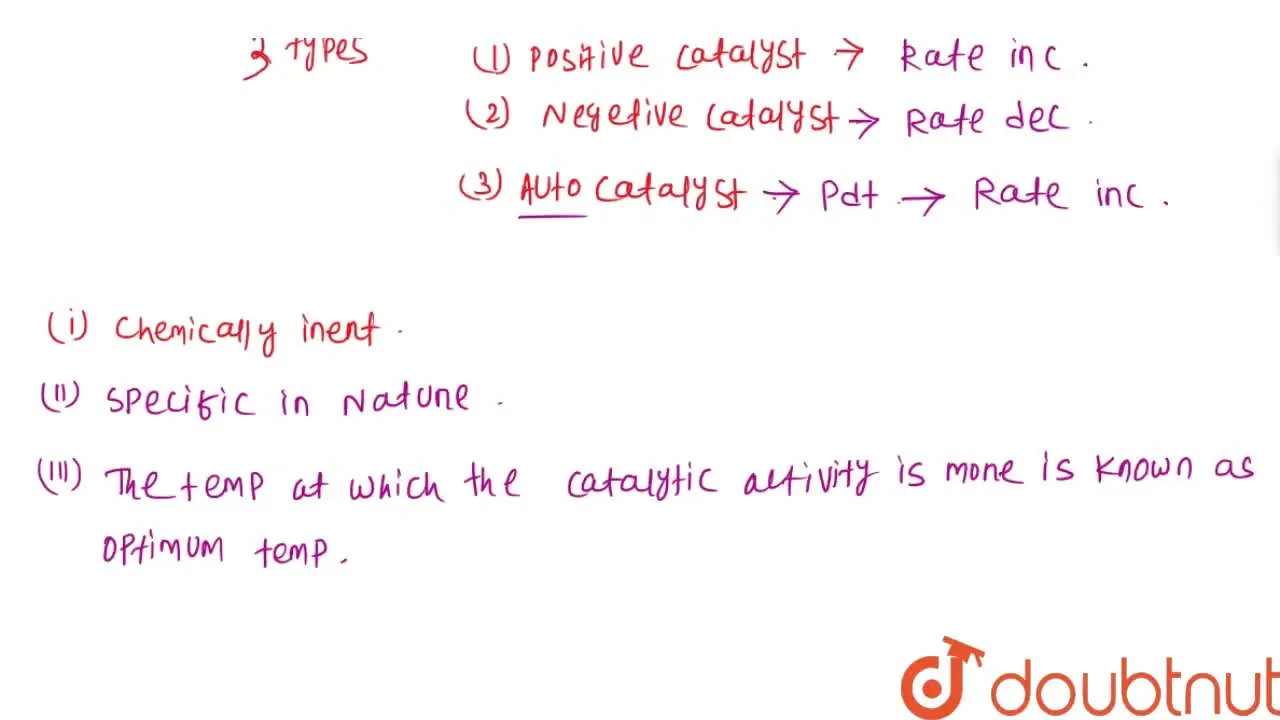 3 types (1) Positive catalyst → Rate inc.
(2) Negetive catalyst → Rate dec.
(3) Auto catalyst → Pdt → Rate inc.
(i) Chemically inert.
(ii) Specific in Nature.
(iii) The temp at which the catalytic activity is more is known as
optimum temp.
doubtnut